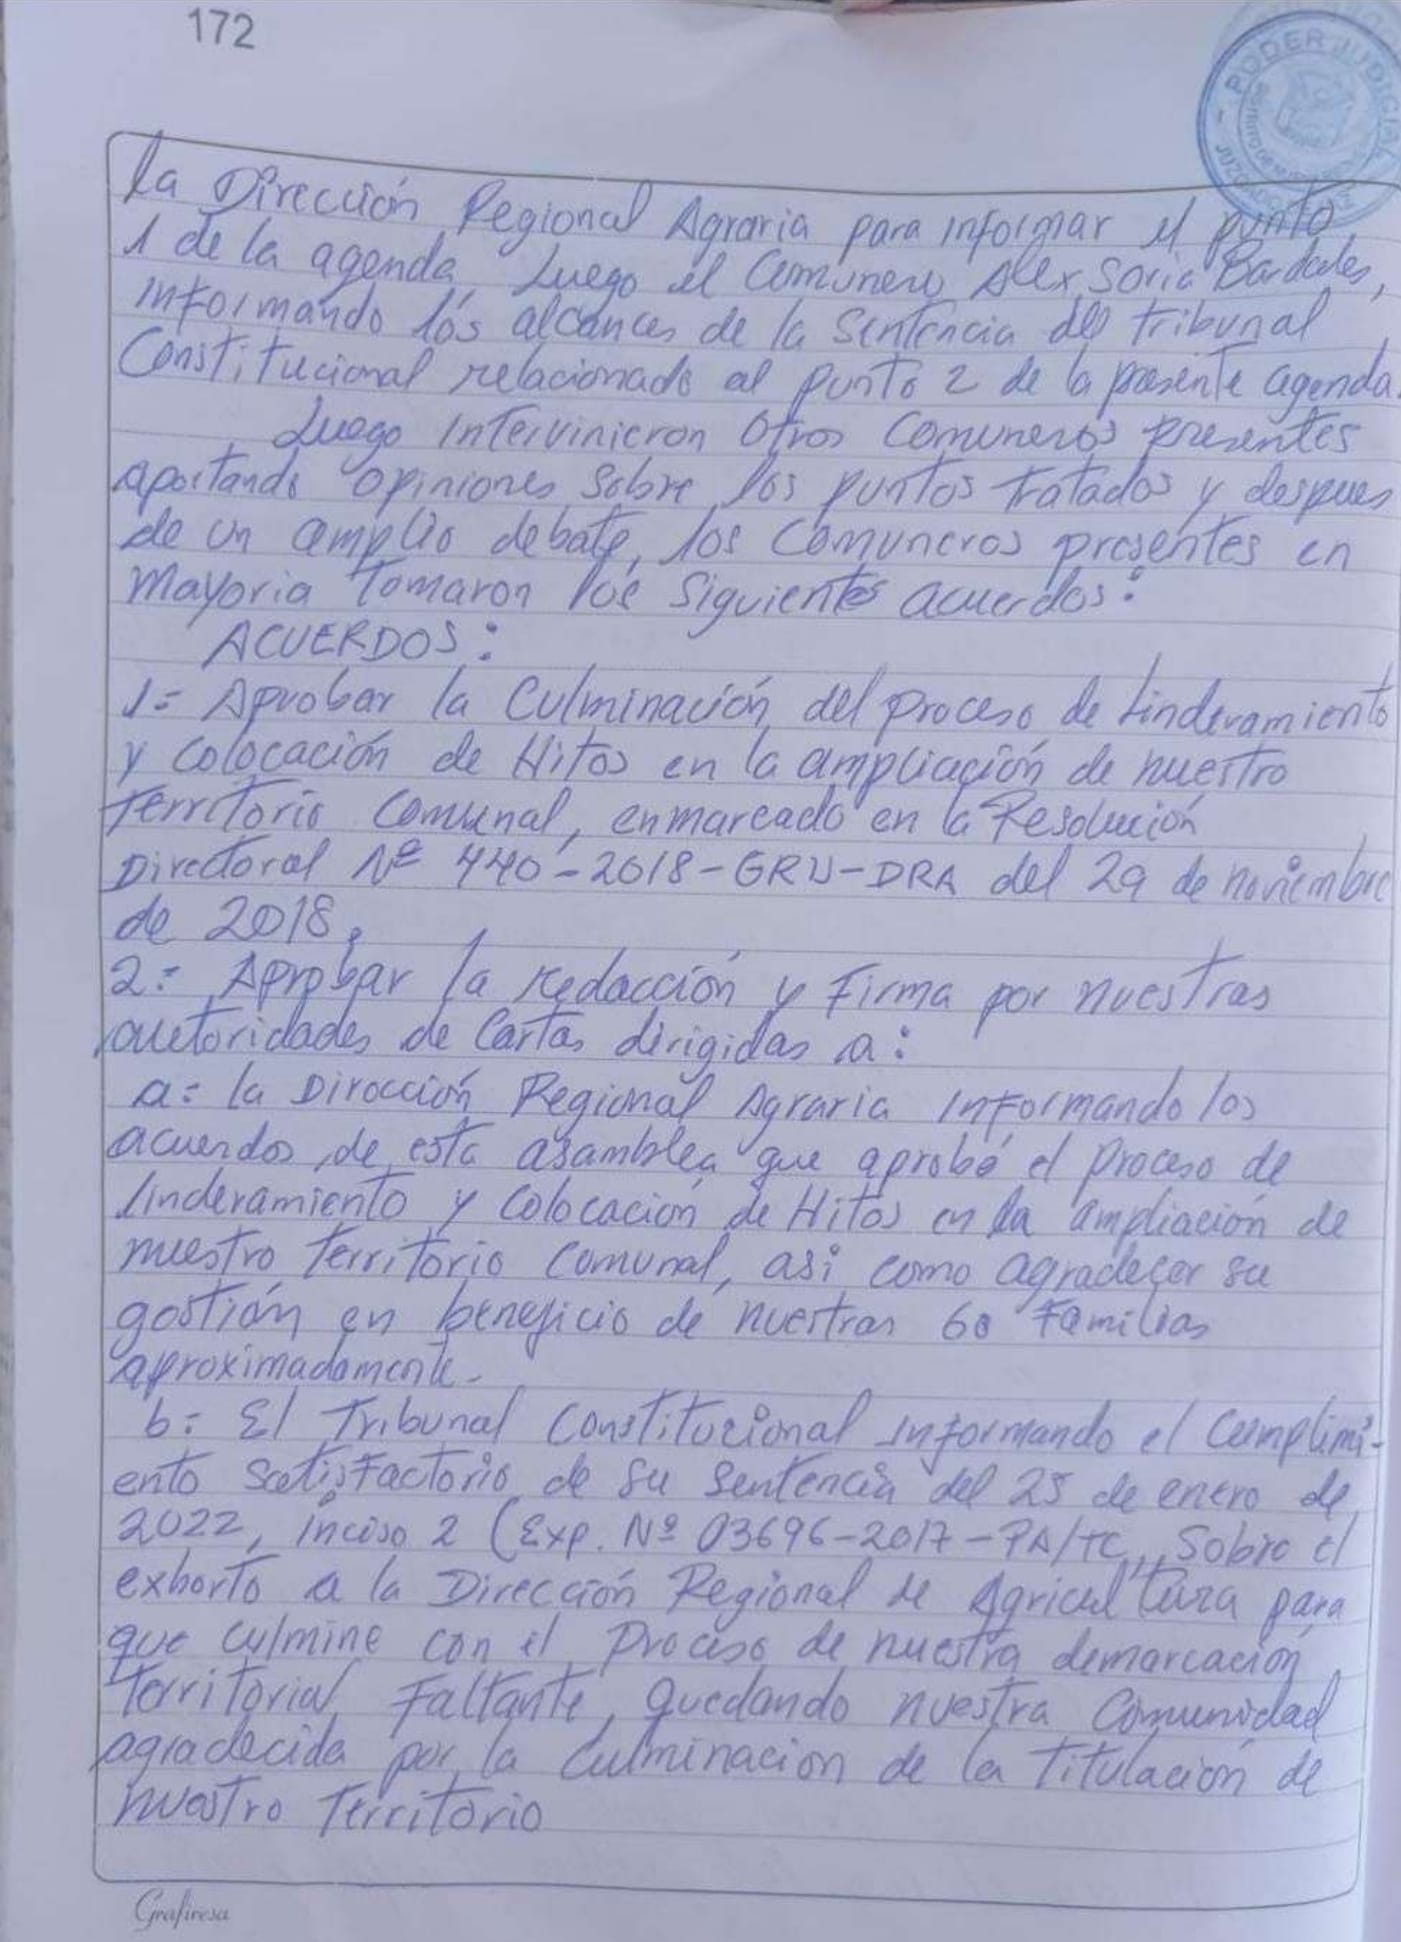 172
PODER JUDICIAL
la Dirección Regional Agraria para informar el punto
1 de la agenda, Luego el Comunero Alex Soria Bardales,
informando los alcances de la Sentencia del tribunal
Constitucional relacionado al punto 2 de la presente agenda.
Luego Intervinieron Otros Comuneros presentes
aportando opiniones sobre los puntos tratados y despues
de un amplio debate, los Comuneros presentes en
Mayoria Tomaron los Siguientes acuerdos:
ACUERDOS:
1= Aprobar la Culminación del proceso de Linderamiento
y Colocación de Hitos en la ampliación de nuestro
Territorio Comunal, enmarcado en la Resolución
Directoral Nº 440-2018-GRU-DRA del 29 de noviembre
de 2018.
2= Aprobar la redacción y Firma por nuestras
autoridades de Cartas dirigidas a:
a= la Dirocción Regional Agraria Informando los
acuerdos de esta asamblea que aprobó el proceso de
linderamiento y Colocación de Hitos en la ampliación de
nuestro Territorio Comunal, asi como agradecer su
gostión en beneficio de nuestras 60 Familias
aproximadamente.-
b= El Tribunal Constitucional informando el Cumplimi-
ento Satisfactorio de su Sentencia del 25 de enero de
2022, inciso 2 (Exp. Nº 03696-2017-PA/TC,, Sobre el
exhorto a la Dirección Regional de Agricultura para
que culmine con el proceso de nuestra demarcación
Territorial Faltante, quedando nuestra Comunidad
agradecida por la Culminación de la Titulación de
nuestro Territorio
Grafiresa